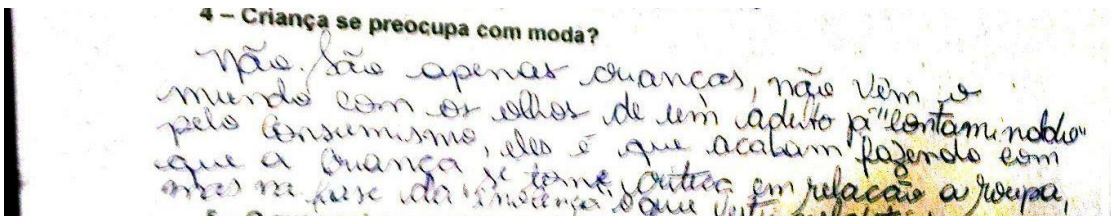 4 – Criança se preocupa com moda?
Não. São apenas crianças, não vêm o
mundo com os olhos de um aduto já "contaminddo"
pelo consumismo, eles é que acabam fazendo com
que a criança se torne crítica em relacão a roupa,
mas na fase da inocença o que